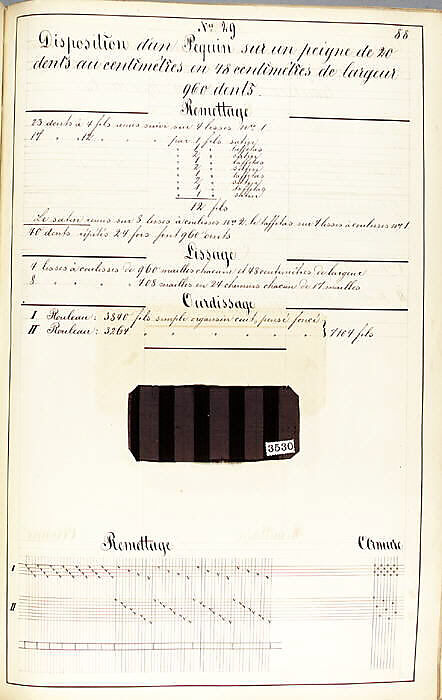 No. 29
88
Disposition d'un Pequin sur un peigne de 20
dents au centimètres en 48 centimètres de largeur
960 dents.
Remettage
23 dents à 4 fils remis suivi sur 4 lisses No. 1
17 " " 12 " " par 1 fils satin
" 1 " taffetas
" 2 " satin
" 1 " taffetas
" 2 " satin
" 1 " taffetas
" 2 " satin
" 1 " taffetas
" 1 " satin
12 fils
Le satin remis sur 8 lisses à coulisses No. 2. le taffetas sur 4 lisses à coulisses No. 1
40 dents répétés 24 fois font 960 dents
Lissage
4 lisses à coulisses de 960 mailles chacune et 48 centimètres de largeur
8 " " " " 408 mailles en 24 chemins chacun de 17 mailles
Ourdissage
I Rouleau: 3840 fils simple organsin cuit, pensé foncé
II Rouleau: 3264 " " " " " "
7104 fils
3530
Remettage
Armure
I
II